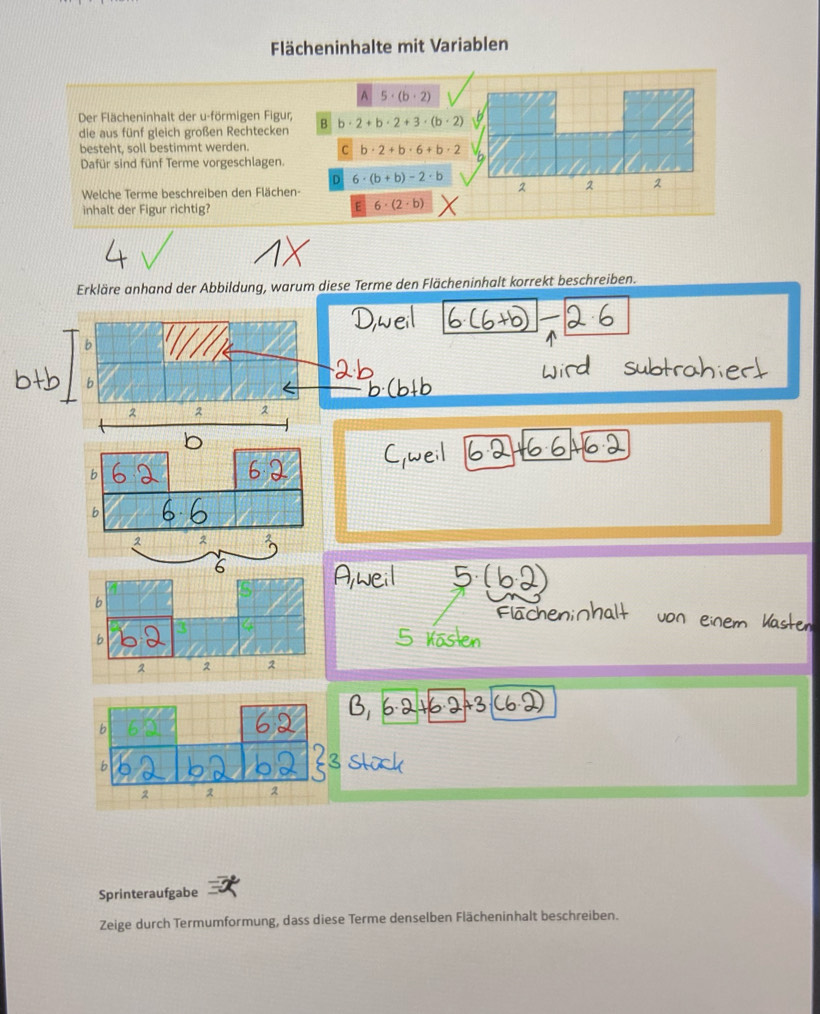 Flächeninhalte mit Variablen
Der Flächeninhalt der u-förmigen Figur,
die aus fünf gleich großen Rechtecken
besteht, soll bestimmt werden.
Dafür sind fünf Terme vorgeschlagen.
Welche Terme beschreiben den Flächen-
inhalt der Figur richtig?
A 5 · (b · 2)
B b · 2 + b · 2 + 3 · (b · 2)
C b · 2 + b · 6 + b · 2
D 6 · (b + b) − 2 · b
E 6 · (2 · b)
b
b
2 2 2
4 ✓ 1X
Erkläre anhand der Abbildung, warum diese Terme den Flächeninhalt korrekt beschreiben.
b+b
b
b
2 2 2
b
2·b
b·(b+b
D, weil 6·(6+b) − 2·6
wird subtrahiert
b 6·2 6·2
b 6·6
2 2 2
6
C, weil 6·2+6·6+6·2
1 5
b
2 3 4
b b·2
2 2 2
A, weil 5·(b·2)
Flächeninhalt von einem Kasten
5 Kästen
b 6·2 6·2
b b·2 b·2 b·2 }3 Stück
2 2 2
B, 6·2+6·2+3·(6·2)
Sprinteraufgabe
Zeige durch Termumformung, dass diese Terme denselben Flächeninhalt beschreiben.